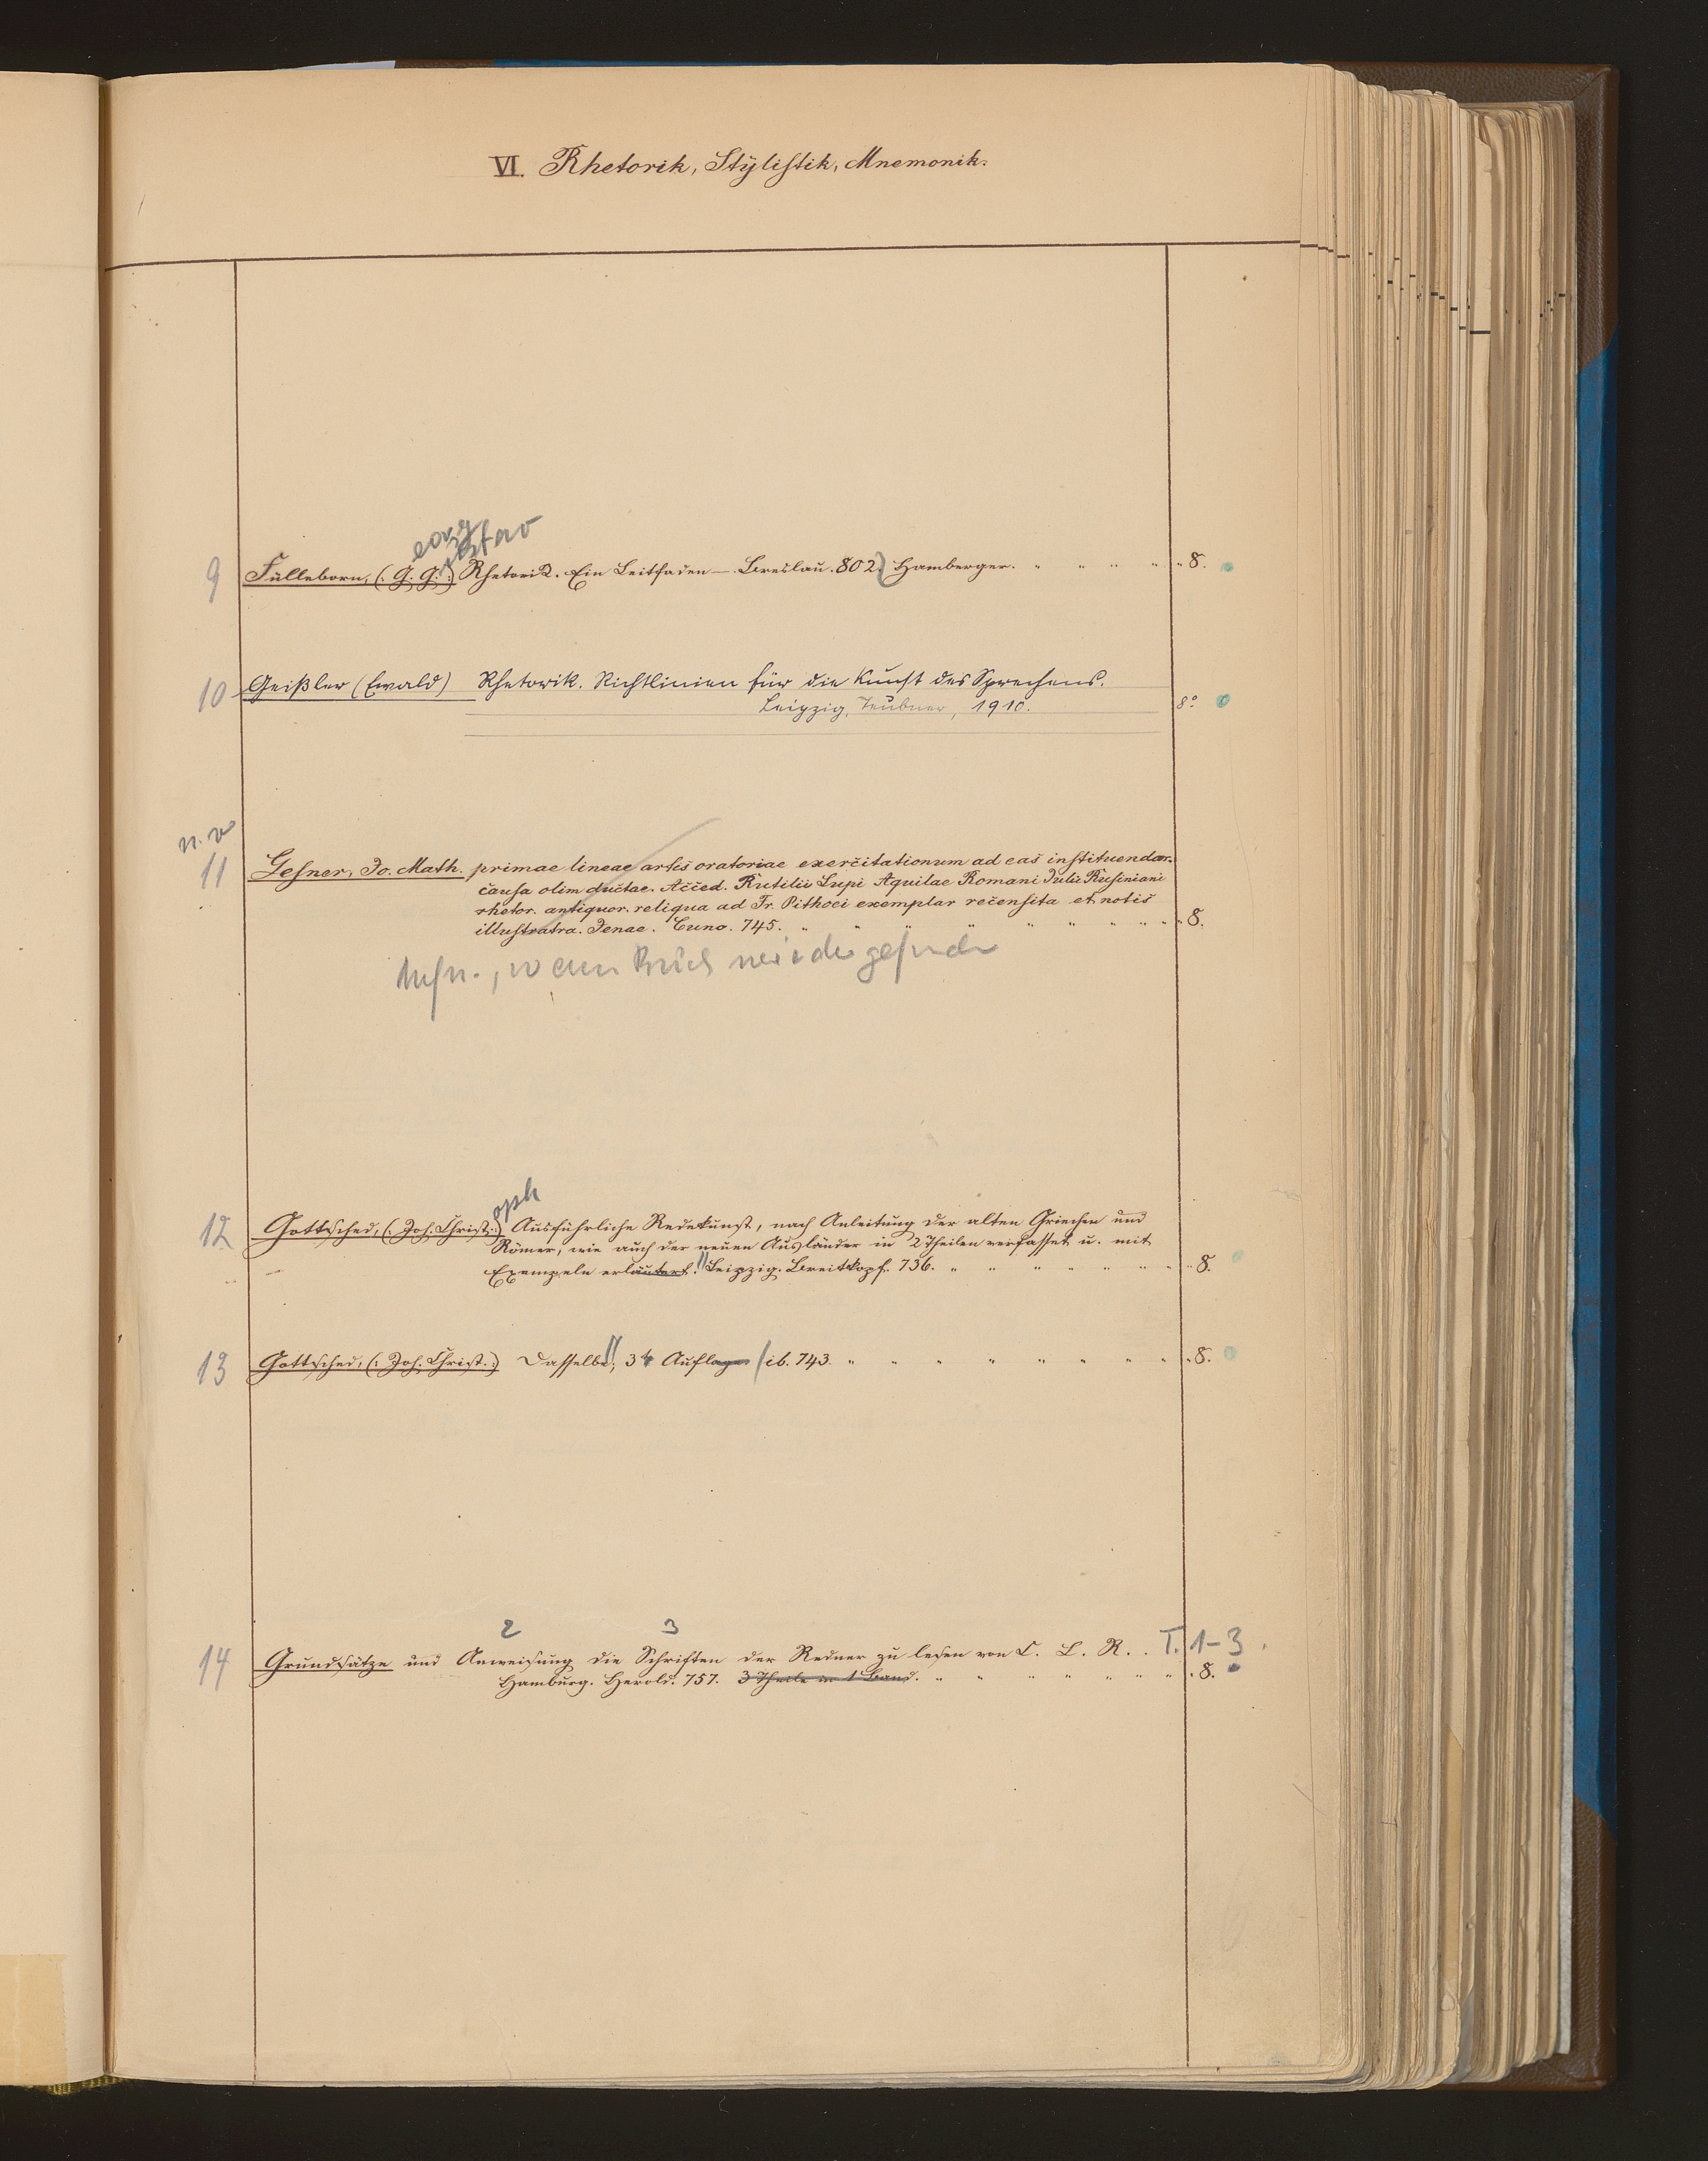 VI. Rhetorik, Stÿlistik, Mnemonik.
eorg ustav
9 Fülleborn, (: G. G. :) Rhetorik. Ein Leitfaden —. Breslau. 802. Hamberger. " " " " " 8.
10 Geißler (Ewald) Rhetorik. Richtlinien für die Kunst des Sprechens.
Leipzig, Teubner, 1910. 8°
n. v
11 Gesner, Jo. Math. primae lineae artis oratoriae exercitationum ad eas instituendar.
causa olim ductae. Acced. Rutilii Lupi Aquilae Romani Julii Rufiniani
rhetor. antiquor. reliqua ad Fr. Pithoei exemplar recensita et notis
illustratra. Jenae. Cuno. 745. " " " " " " " " 8.
wenn
oph
12 Gottsched, (: Joh. Christ. :) Ausführliche Redekunst, nach Anleitung der alten Griechen und
Römer, wie auch der neuen Ausländer in 2 Theilen verfasset u. mit
Exempeln erläutert. Leipzig. Breitkopf. 736. " " " " " " " 8.
13 Gottsched, (: Joh. Christ. :) Dasselbe, 3te Auflage ib. 743. " " " " " " " " 8.
2 3
14 Grundsätze und Anweisung die Schriften der Redner zu lesen von C. L. R. . T. 1-3.
Hamburg. Herold. 757. 3 Theile in 1 Band. " " " " " " 8.